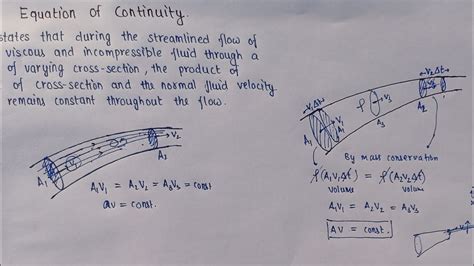 Equation of Continuity.
states that during the streamlined flow of
viscous and incompressible fluid through a
of varying cross-section, the product of
of cross-section and the normal fluid velocity
remains constant throughout the flow.
A₁
V₁
V₂
A₂
A₁V₁ = A₂V₂ = A₃V₃ = const
av = const.
V₁Δt
V₁
A₁
A₁
ρ
A₃
V₂Δt
V₂
A₂
By mass conservation
ρ(A₁V₁Δt) = ρ(A₂V₂Δt)
volume volume
A₁V₁ = A₂V₂ = A₃V₃
AV = const.